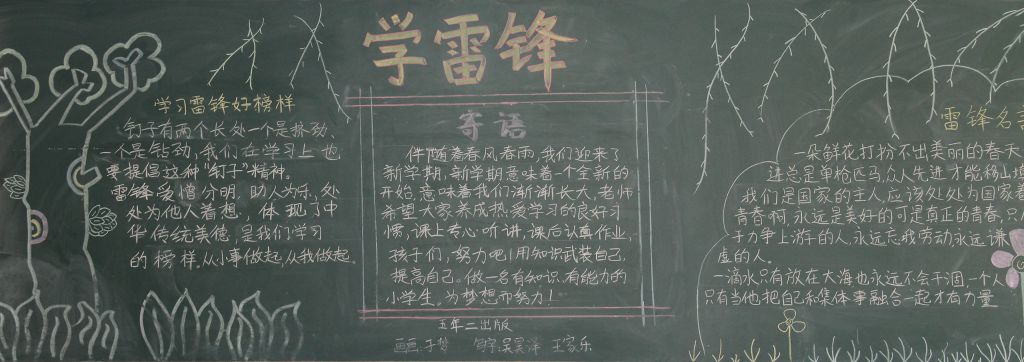 学雷锋
学习雷锋好榜样
钉子有两个长处一个是挤劲、
一个是钻劲,我们在学习上也
要提倡这种"钉子"精神。
雷锋爱憎分明,助人为乐,处
处为他人着想,体现了中
华传统美德,是我们学习
的榜样。从小事做起,从我做起。
寄语
伴随着春风春雨,我们迎来了
新学期,新学期意味着一个全新的
开始,意味着我们渐渐长大,老师
希望大家养成热爱学习的良好习
惯,课上专心听讲,课后认真作业,
孩子们,努力吧!用知识武装自己,
提高自己。做一名有知识,有能力的
小学生,为梦想而努力!
五年二出版
雷锋名言
一朵鲜花打扮不出美丽的春天
进总是单枪匹马,众人先进才能移山填
我们是国家的主人,应该处处为国家着
青春啊,永远是美好的可是真正的青春,只
于力争上游的人,永远忘我劳动永远谦
虚的人。
一滴水只有放在大海也永远不会干涸一个人
只有当他把自己和集体事融合一起才有力量